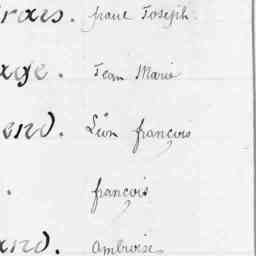 rais. frane Joseph.
age. Jean Marie
end. Léon françois
. françois
and. Ambroise